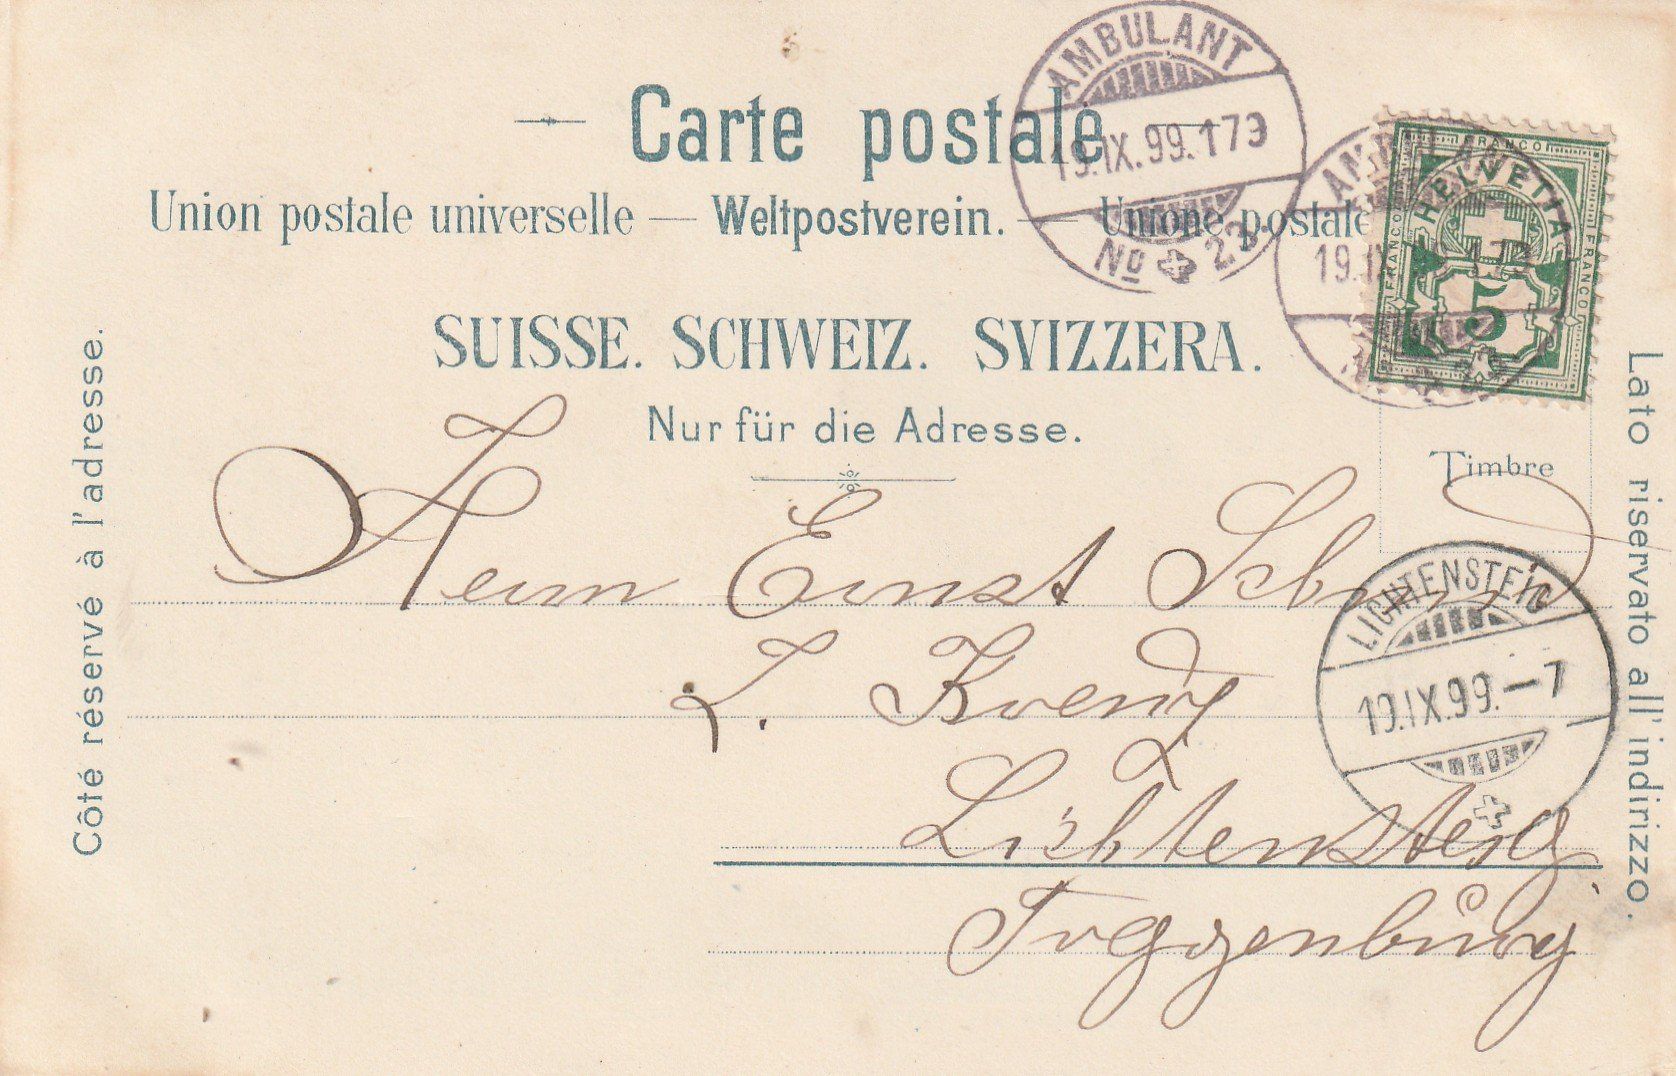 Carte postale
Union postale universelle — Weltpostverein. — Unione postale
SUISSE. SCHWEIZ. SVIZZERA.
Nur für die Adresse.
Côté réservé à l'adresse.
Lato riservato all'indirizzo.
Timbre
AMBULANT
19.IX.99.179
No 23.
AMBULANT
19.IX
HELVETIA
FRANCO
FRANCO
FRANCO
5
LICHTENSTEIG
19.IX.99.–7
Herrn Ernst Schmid
z. Kreuz
Lichtensteig
Toggenburg